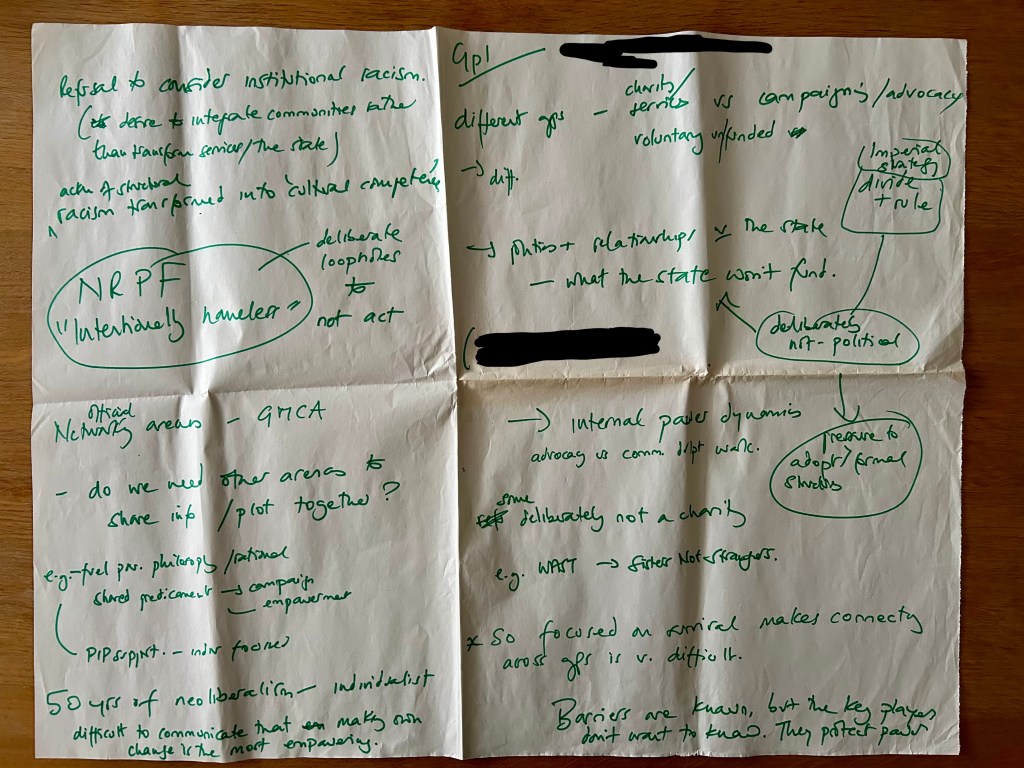 Refusal to consider institutional racism.
(desire to integrate communities rather
than transform services/the state)
of structural
racism transformed into 'cultural competence'
NRPF
"Intentionally homeless"
deliberate
loopholes
to
not act
official
Network areas - GMCA
- do we need other arenas to
share info / plot together?
e.g. - fuel pov. philosophy / rational
shared predicament → campaign
empowerment
PIP support. - indiv focused
50 yrs of neoliberalism - individualist
difficult to communicate that making own
change is the most empowering.
Gp1
different gps - charity/
services vs campaigning/advocacy
voluntary v funded
→ diff.
Imperial
strategy
divide
+ rule
→ politics + relationships v the state
- what the state won't fund.
deliberately
not-political
(
→ internal power dynamics
advocacy vs comm. dvpt work.
pressure to
adopt formal
some
deliberately not a charity
e.g. WAST → Sisters Not Strangers.
* So focused on survival makes connecty
across gps is v. difficult.
Barriers are known, but the key players
don't want to know. They protect power